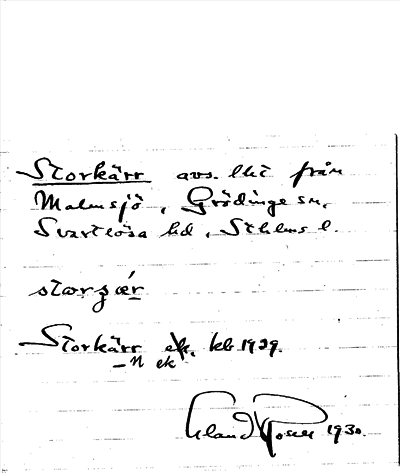 Storkärr avs. lht från
Malmsjö, Grödinge sn,
Svartlösa hd, Sthlms l.
Storkärr ek. kb 1929.
-n ek
Erland Rosell 1930.